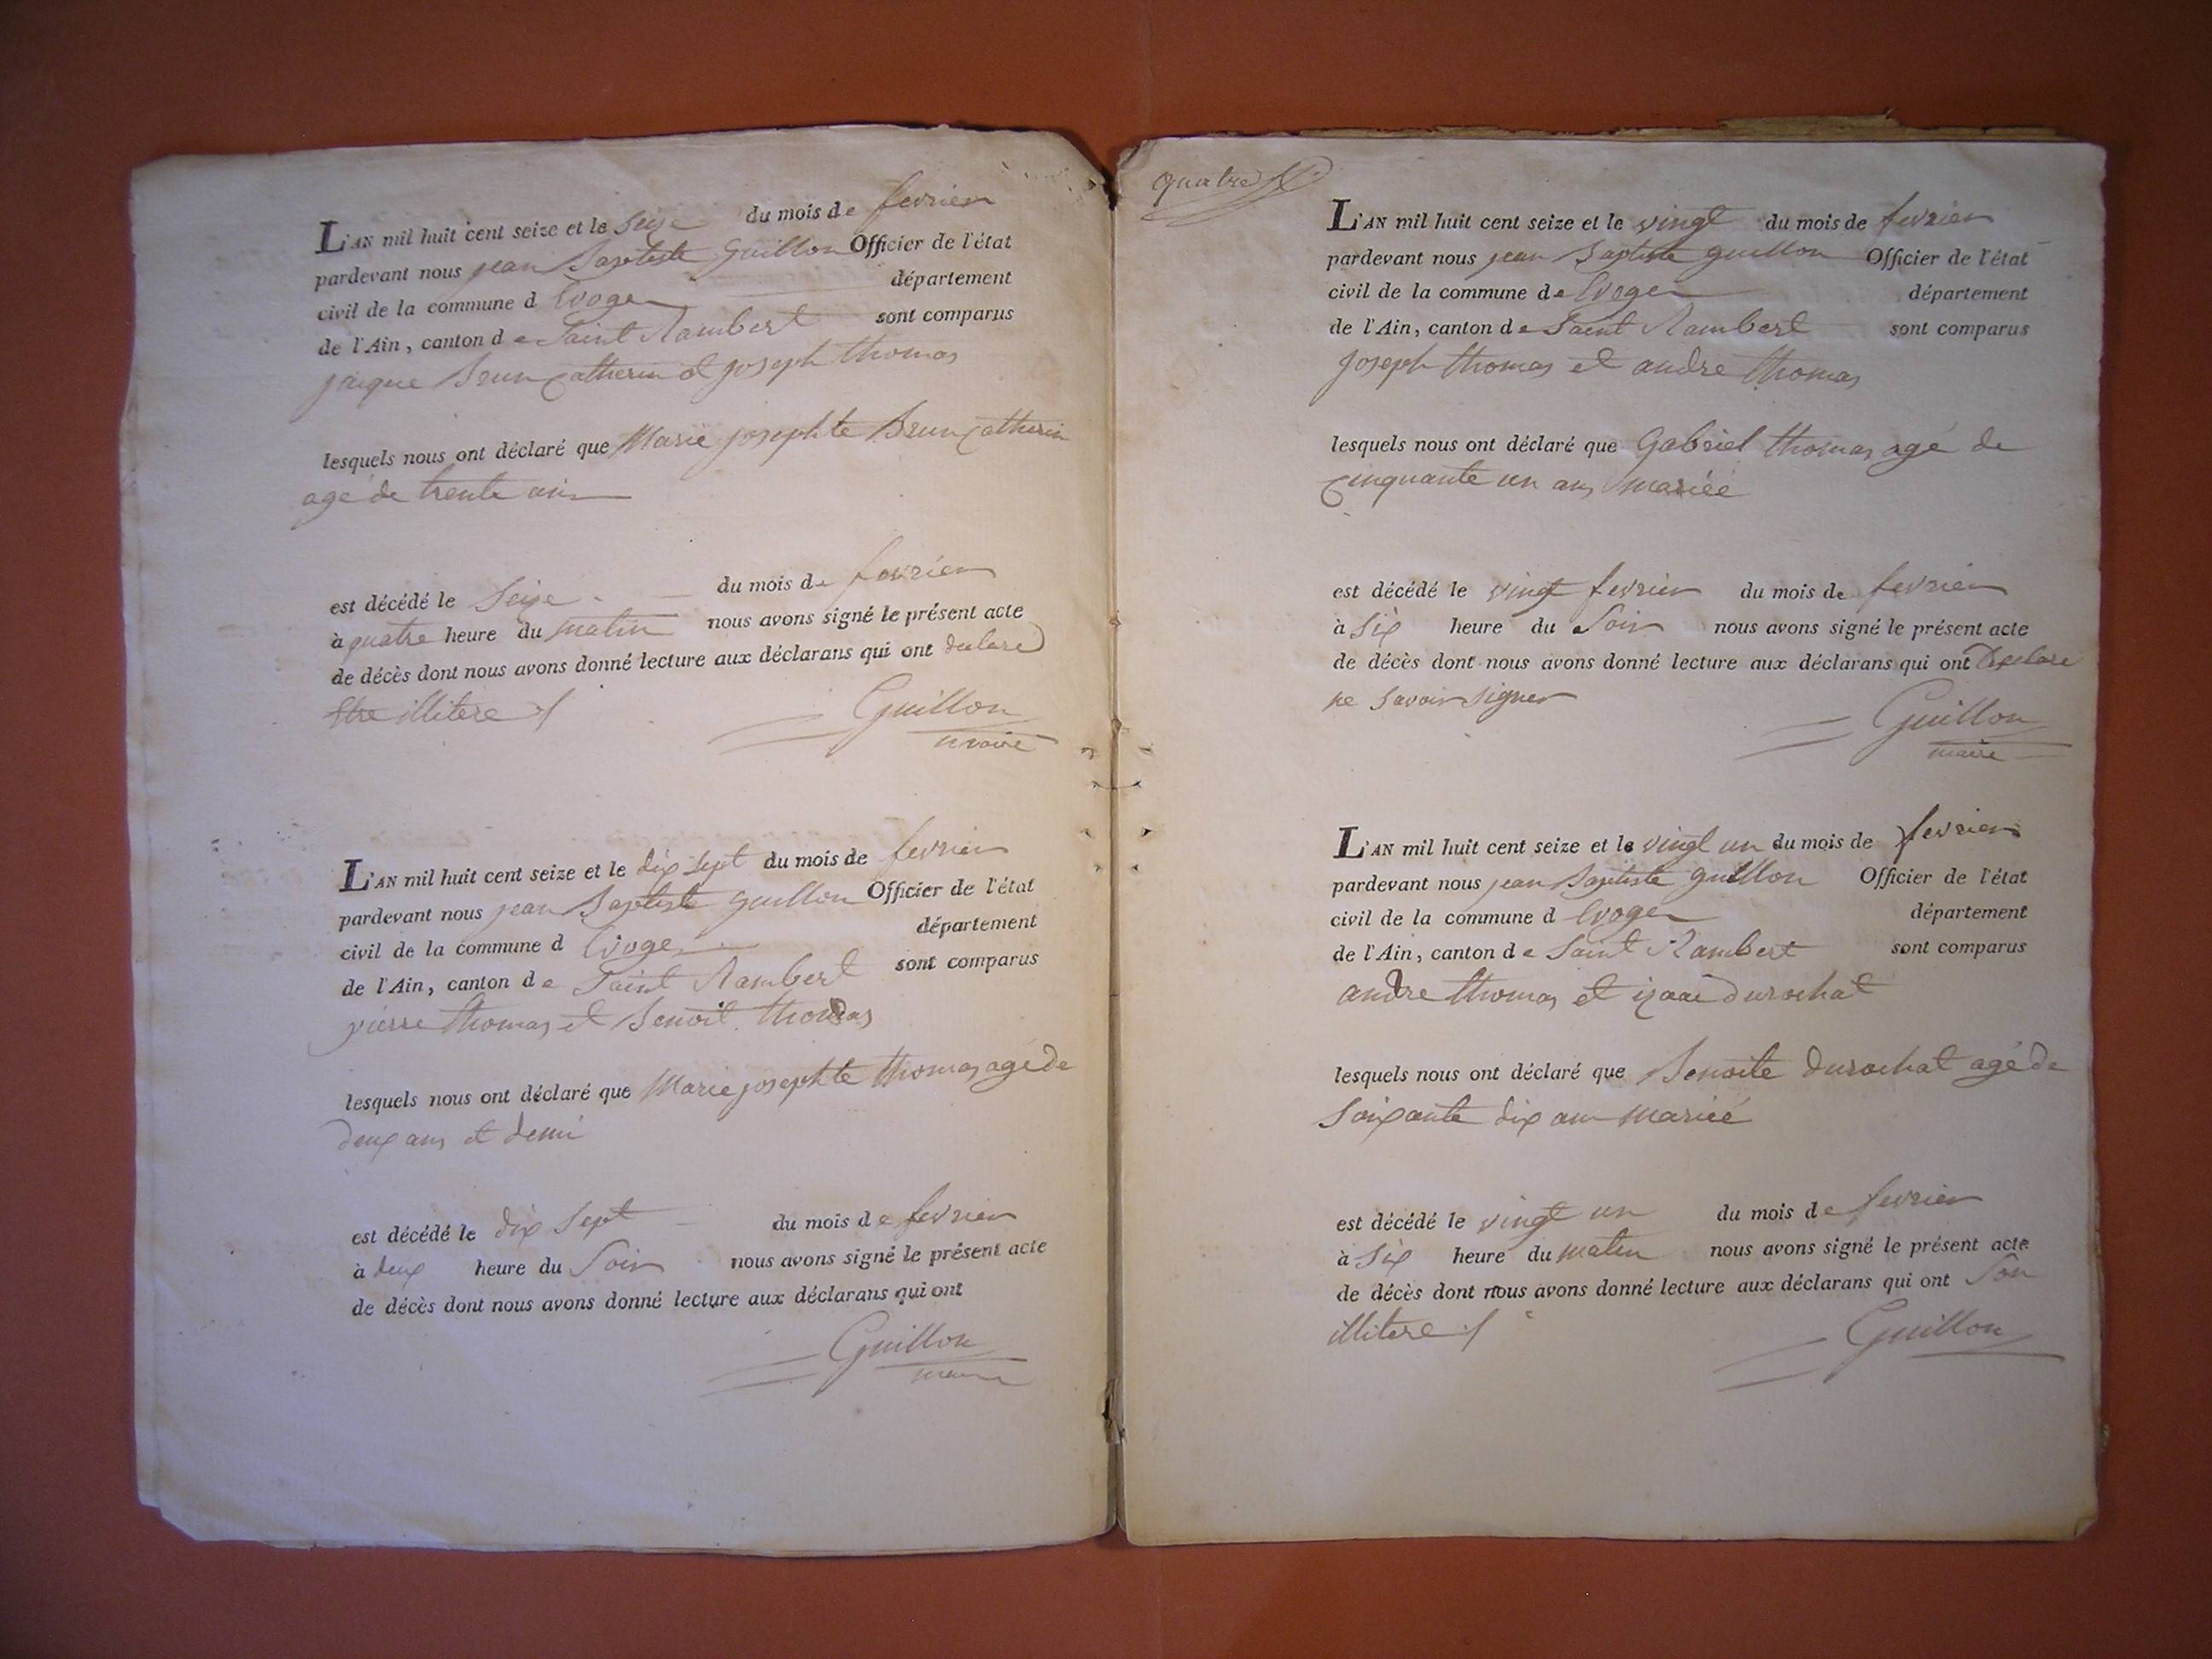 L'AN mil huit cent seize et le seize du mois de fevrier
pardevant nous jean Baptiste Guillon Officier de l'état
civil de la commune d Evoges département
de l'Ain, canton de Saint Rambert sont comparus
jacque Brun Catherin et joseph thomas
lesquels nous ont déclaré que Marie josephte Brun Catherin
agé de trente ans
est décédé le Seize du mois de fevrier
à quatre heure du matin nous avons signé le présent acte
de décès dont nous avons donné lecture aux déclarans qui ont declare
Etre illitere
Guillon
maire
L'AN mil huit cent seize et le dix sept du mois de fevrier
pardevant nous jean Baptiste guillon Officier de l'état
civil de la commune d Evoges département
de l'Ain, canton de Saint Rambert sont comparus
pierre thomas et Benoit thomas
lesquels nous ont déclaré que Marie josephte thomas agé de
deux ans et demi
est décédé le dix Sept du mois de fevrier
à deux heure du Soir nous avons signé le présent acte
de décès dont nous avons donné lecture aux déclarans qui ont
Guillon
maire
quatre
L'AN mil huit cent seize et le vingt du mois de fevrier
pardevant nous jean Baptiste guillon Officier de l'état
civil de la commune de Evoges département
de l'Ain, canton de Saint Rambert sont comparus
joseph thomas et andre thomas
lesquels nous ont déclaré que Gabriel thomas agé de
cinquante un ans mariéé
est décédé le vingt fevrier du mois de fevrier
à Six heure du Soir nous avons signé le présent acte
de décès dont nous avons donné lecture aux déclarans qui ont Declare
ne Savoir Signer
Guillon
maire
L'AN mil huit cent seize et le vingt un du mois de fevrier
pardevant nous jean Baptiste guillon Officier de l'état
civil de la commune d Evoges département
de l'Ain, canton de Saint Rambert sont comparus
andre thomas et izaac durochat
lesquels nous ont déclaré que Benoite durochat agé de
Soixante dix ans mariéé
est décédé le vingt un du mois de fevrier
à Six heure du matin nous avons signé le présent acte
de décès dont nous avons donné lecture aux déclarans qui ont Son
illitere
Guillon